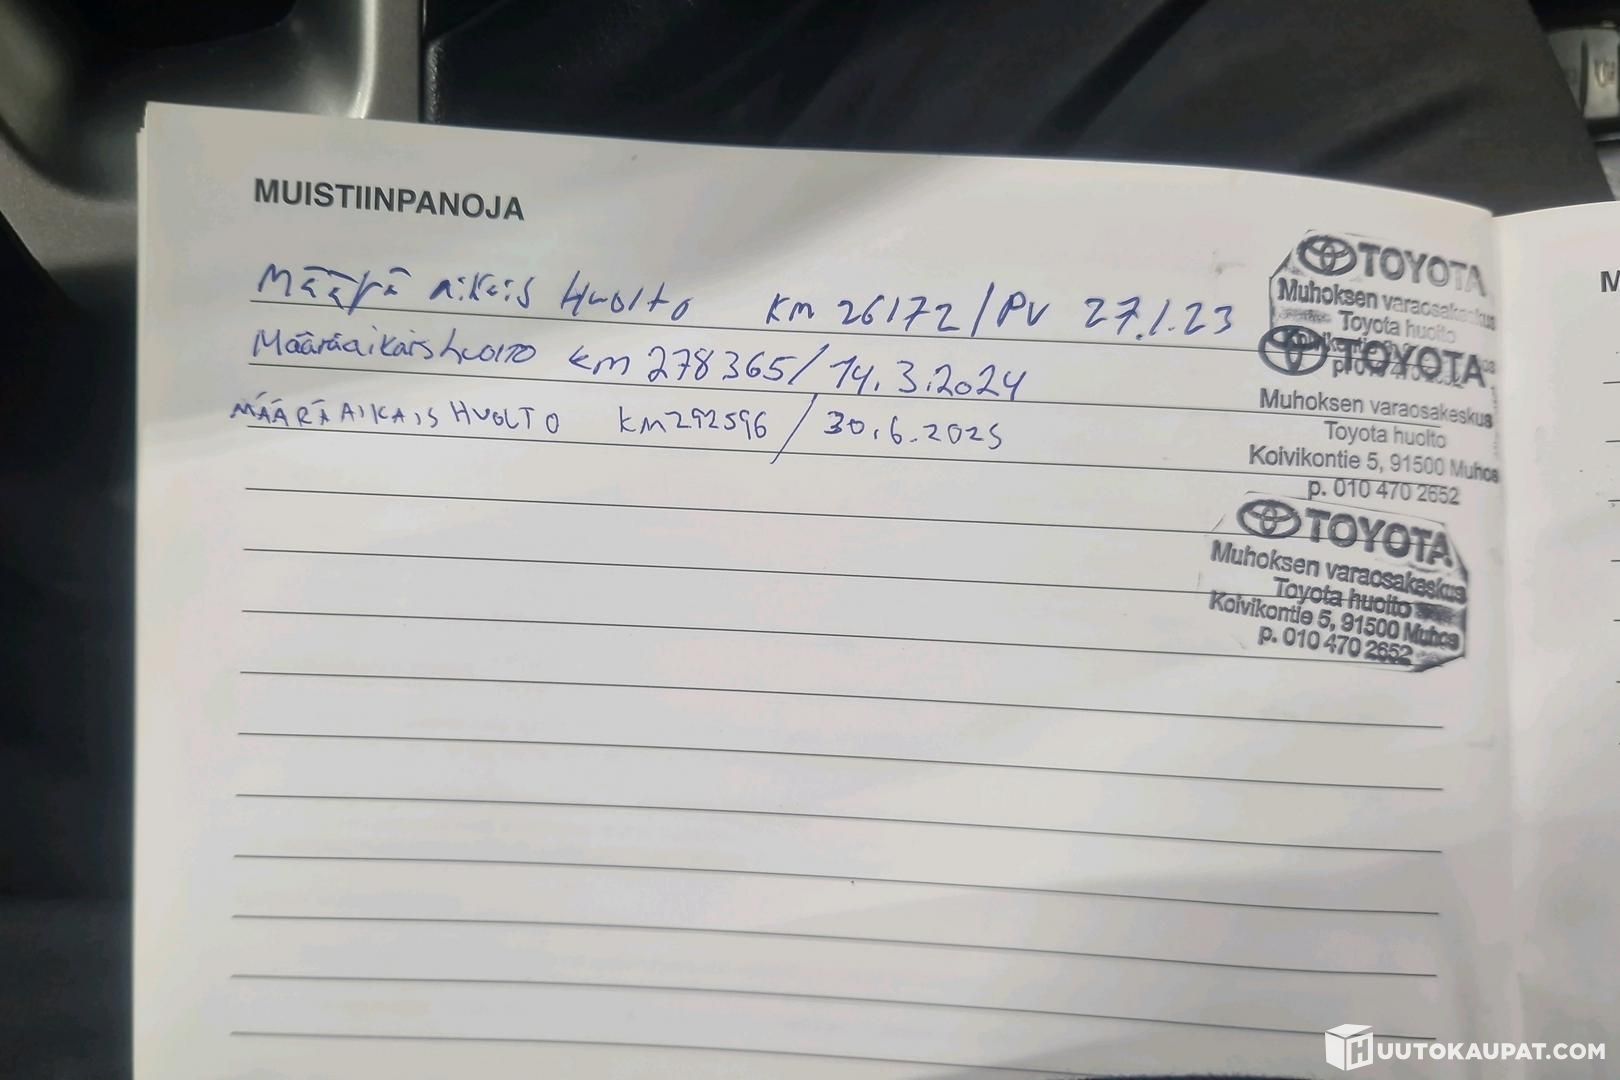 MUISTIINPANOJA
Määrä aikais Huolto km 26172 / PV 27.1.23
Määräaikaishuolto km 278365 / 14.3.2024
MÄÄRÄAIKAIS HUOLTO km 292596 / 30.6.2025
TOYOTA
Muhoksen varaosakeskus
Toyota huolto
TOYOTA
Muhoksen varaosakeskus
Toyota huolto
Koivikontie 5, 91500 Muhos
p. 010 470 2652
TOYOTA
Muhoksen varaosakeskus
Toyota huolto
Koivikontie 5, 91500 Muhos
p. 010 470 2652
M
HUUTOKAUPAT.COM